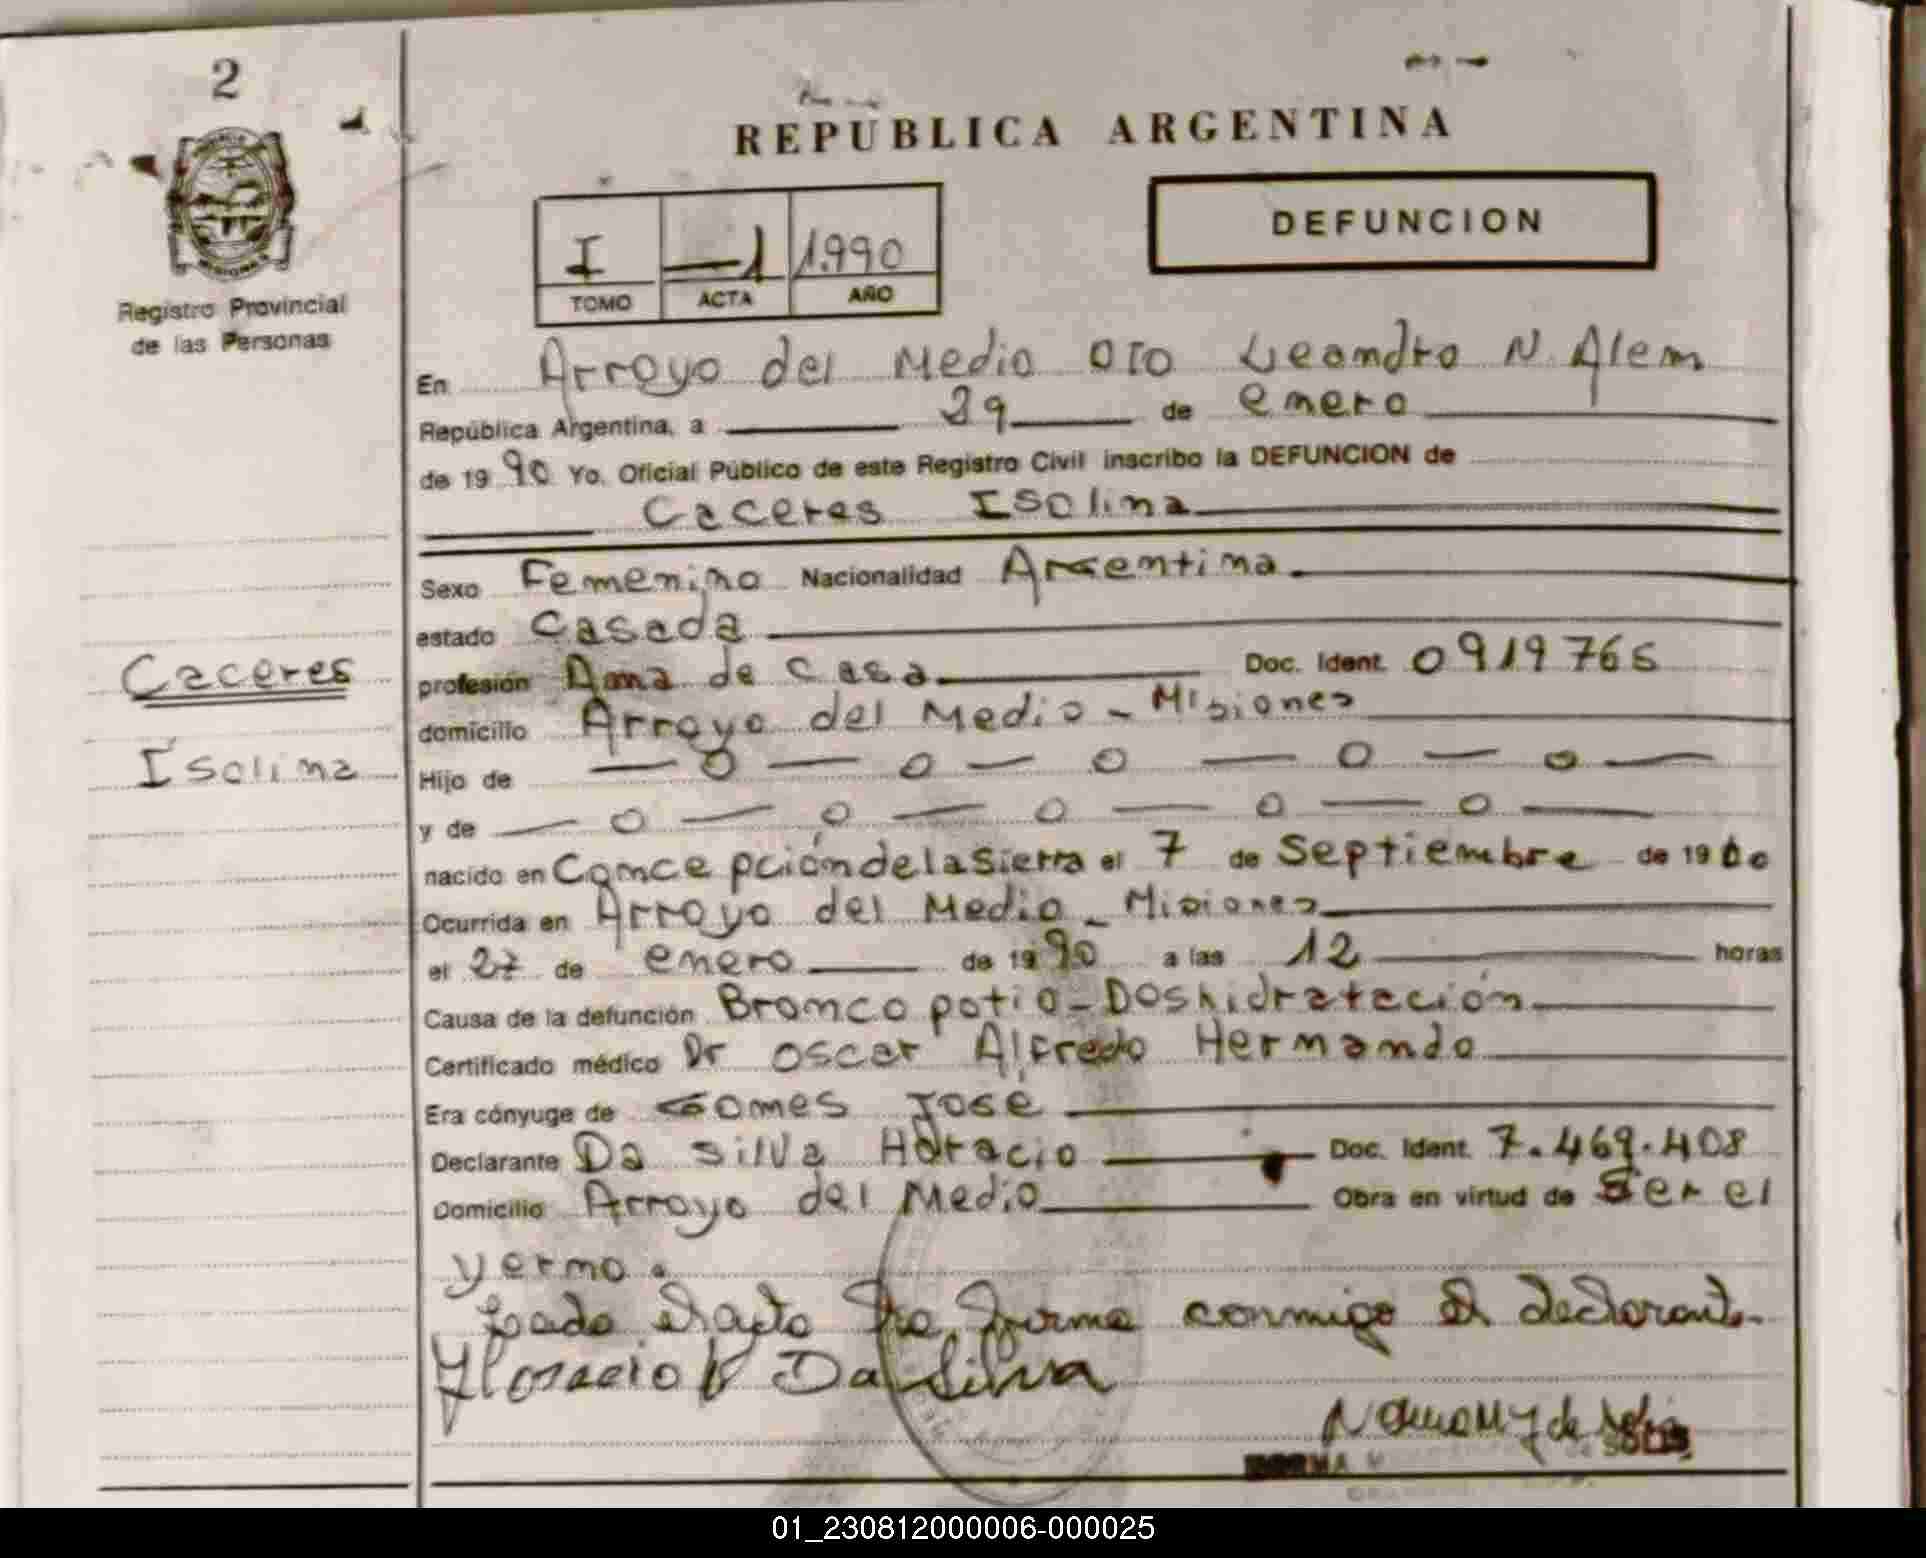 2
REPUBLICA ARGENTINA
DEFUNCION
I —1 1.990
TOMO ACTA AÑO
Registro Provincial
de las Personas
En Arroyo del Medio DTO Leandro N. Alem
República Argentina, a 29 de enero
de 19 90 Yo, Oficial Público de este Registro Civil inscribo la DEFUNCION de
Caceres Isolina
Sexo Femenino Nacionalidad Argentina
estado Casada
Caceres
profesión Ama de Casa Doc. Ident. 0919765
domicilio Arroyo del Medio - Misiones
Isolina
Hijo de — o — o — o — o — o —
y de — o — o — o — o — o —
nacido en Concepción de la Sierra el 7 de Septiembre de 19
Ocurrida en Arroyo del Medio - Misiones
el 27 de enero de 19 90 a las 12 horas
Causa de la defunción Broncopatia - Deshidratación
Certificado médico Dr Oscar Alfredo Hernando
Era cónyuge de Gomes José
Declarante Da Silva Horacio Doc. Ident. 7.469.408
Domicilio Arroyo del Medio Obra en virtud de Ser el
yerno.
Leida el acta la firma conmigo el declarante.
Horacio V Da Silva
NORMA M
01_230812000006-000025